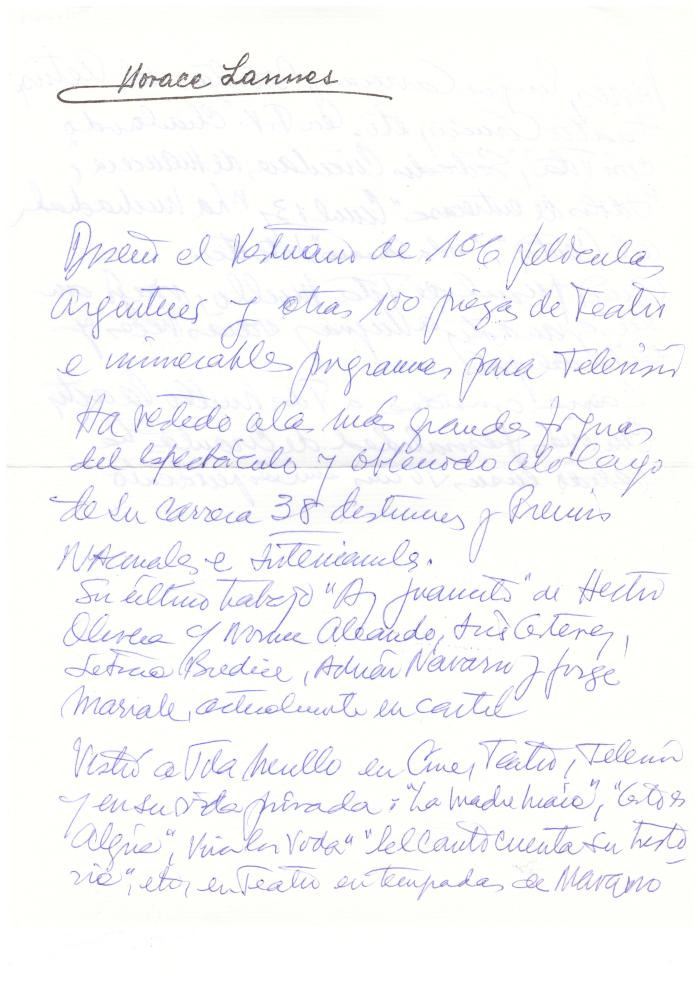 Horace Lannes
Diseñó el Vestuario de 106 películas
Argentinas y otras 100 piezas de Teatro
e innumerables programas para Televisión
Ha vestido a las más grandes figuras
del espectáculo y obtenido a lo largo
de su carrera 38 distinciones y Premios
NAcionales e Internacionales.
Su último trabajo "Ay Juancito" de Hector
Olivera y Norma Aleandro, Inés Estevez,
Leticia Bredice, Adrián Navarro y Jorge
Marrale, actualmente en cartel
Vistió a Tita Merello en Cine, Teatro, Televisión
y en su vida privada: "La madre María", "Esto es
Alegría", Viva la Vida" "el canto cuenta su histo
ria", etc, en Teatro en tempadas de